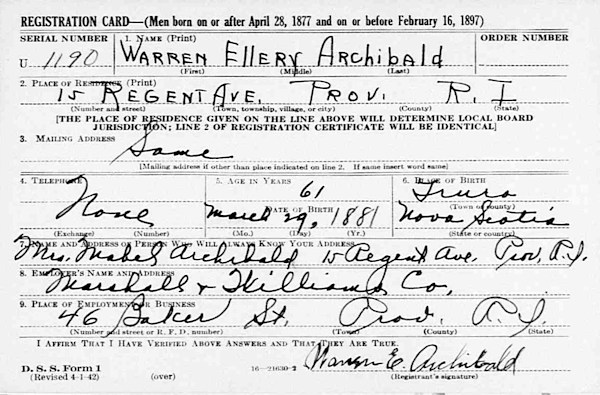 REGISTRATION CARD—(Men born on or after April 28, 1877 and on or before February 16, 1897)
SERIAL NUMBER 1. NAME (Print) ORDER NUMBER
U 1190 WARREN ELLERY ARCHIBALD
(First) (Middle) (Last)
2. PLACE OF RESIDENCE (Print)
15 REGENT AVE. PROV. R. I
(Number and street) (Town, township, village, or city) (County) (State)
[THE PLACE OF RESIDENCE GIVEN ON THE LINE ABOVE WILL DETERMINE LOCAL BOARD
JURISDICTION; LINE 2 OF REGISTRATION CERTIFICATE WILL BE IDENTICAL]
3. MAILING ADDRESS
Same
[Mailing address if other than place indicated on line 2. If same insert word same]
4. TELEPHONE 5. AGE IN YEARS 6. PLACE OF BIRTH
61 Truro
DATE OF BIRTH (Town or county)
None March 29, 1881 Nova Scotia
(Exchange) (Number) (Mo.) (Day) (Yr.) (State or country)
7. NAME AND ADDRESS OF PERSON WHO WILL ALWAYS KNOW YOUR ADDRESS
Mrs. Mabel Archibald 15 Regent Ave. Prov, R.I.
8. EMPLOYER'S NAME AND ADDRESS
Marshall & Williams Co,
9. PLACE OF EMPLOYMENT OR BUSINESS
46 Baker St. Prov. R.I.
(Number and street or R. F. D. number) (Town) (County) (State)
I AFFIRM THAT I HAVE VERIFIED ABOVE ANSWERS AND THAT THEY ARE TRUE.
D. S. S. Form 1 Warren E. Archibald
(Revised 4-1-42) (over) 16—21630-2 (Registrant's signature)